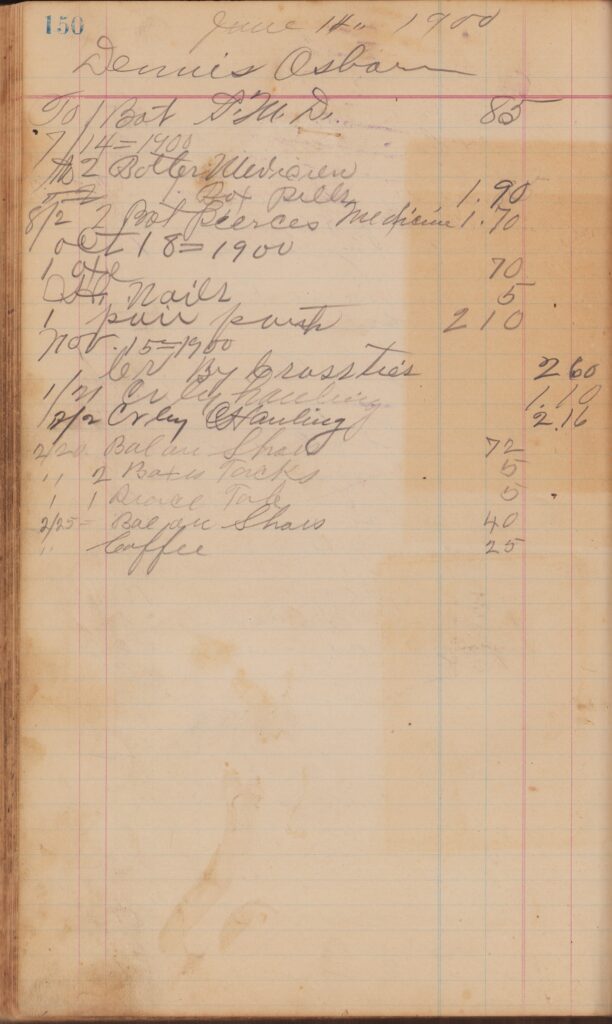 150
June 14 1900
Dennis Osborn
To 1 Bot 85
7/14=1900
2 Bottler Medicien
1 Box pills 1.90
8/2 2 Bot Pierces Medicine 1.70
oct 18=1900
1 70
Nails 5
1 pair pants 2 10
Nov. 15=1900
Cr By Crossties 2 60
1/21 Cr by hauling 1.10
2/2 Cr by Hauling 2.16
2/20 Balan Shoes 72
" 2 Boxes Tacks 5
1 1 5
2/25= Balan Shoes 40
" Coffee 25